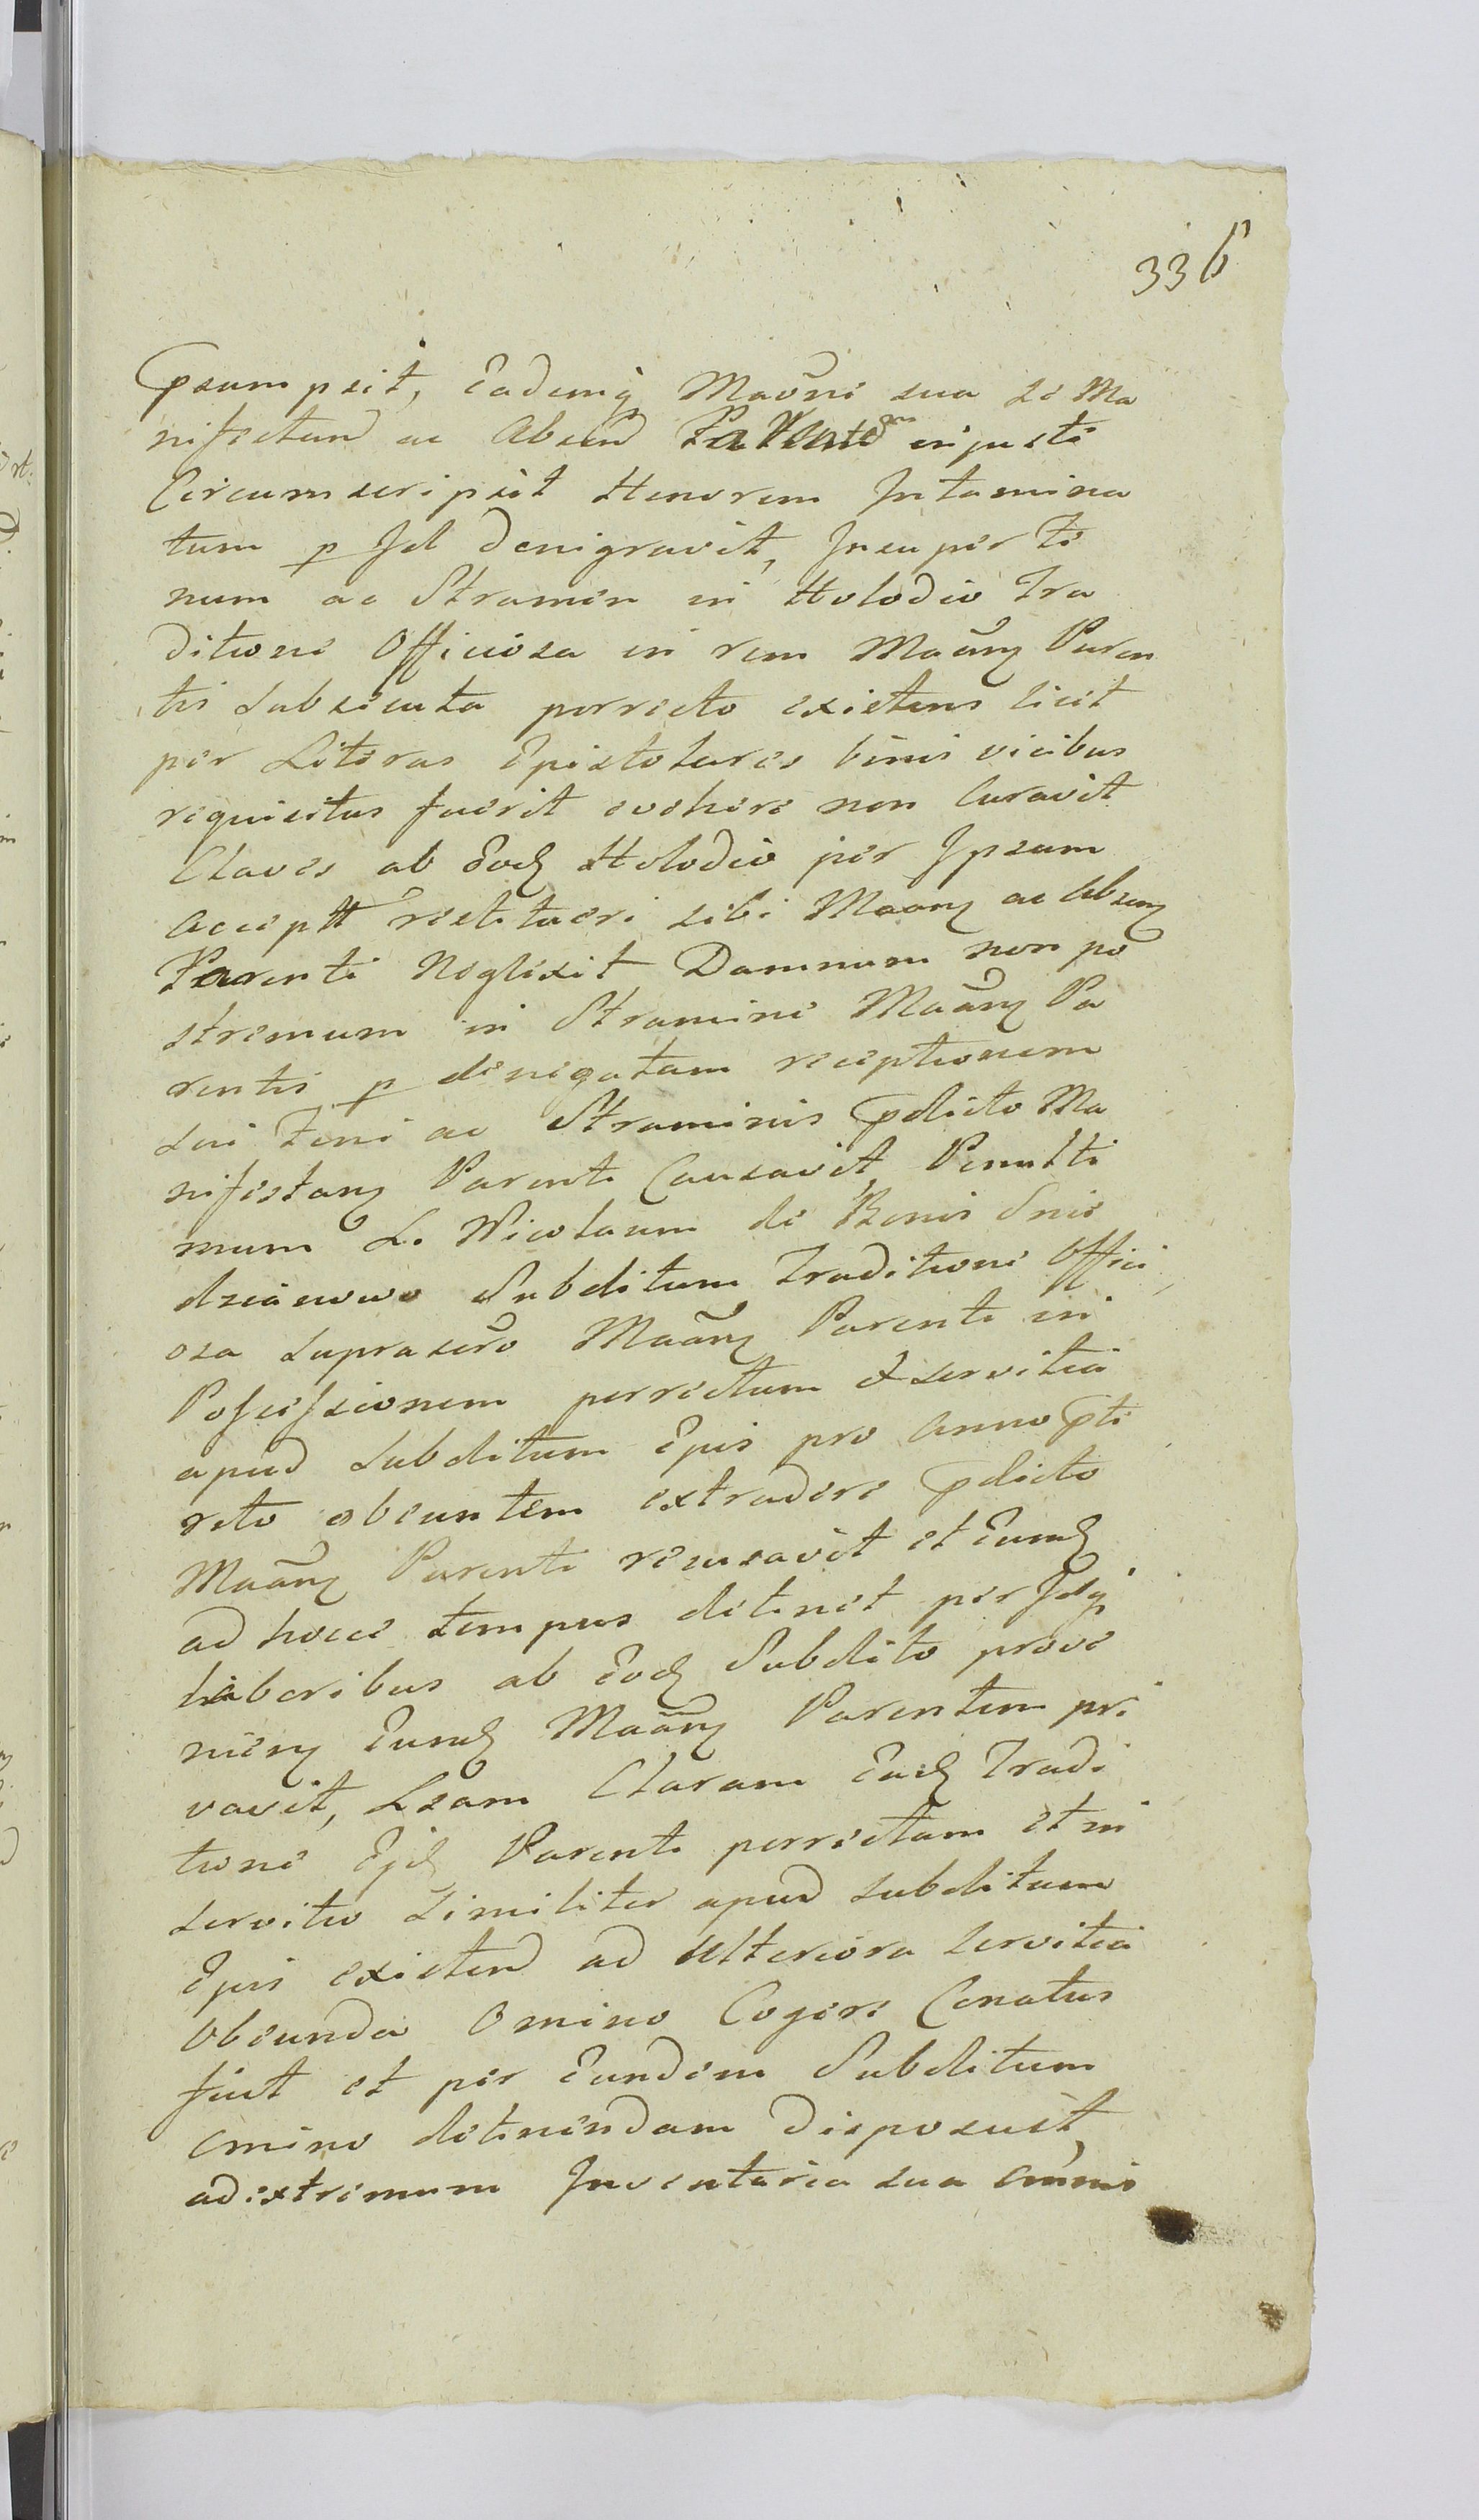 336
Psumpsit, Eademq̃ Maõni sua se Ma
nifestand ac Absend Parentem injuste
Circumscripsit Honorem Intamina
tum p Id denigravit, Insuper Fe
num ac Stramen in Holodio Tra
ditione Officiosa in rem Maãnʒ Paren
tis subsecuta porrecto existens licet
per Literas Epistolares binis vicibus
requisitus fuerit evehere non Curavit
Claves ab Eodʒ Holodio per Ipsum
Acceptt restitueri sibi Maanʒ ac Absenʒ
Parenti Neglexit Damnum non po
stremum in Stramine Maãnʒ Pa
rentis p denegatam receptionem
sui Feni ac Straminis Pdicto Ma
nifestanʒ Parenti Causavit, Penulti
mum L. Nicolaum de Bonis Snie
dzianowo Subditum Traditione Offici
osa suprascro Maãnʒ Parenti in
Possessionem porrectum & servitia
apud subditum Epis pro Anno Pte
rito obeuntem extradere Pdicto
Maãnʒ Parenti recusavit et Eundʒ
ad hocce tempus detinet per Idq̃
laboribus ab Eodʒ Subdito prove
nienʒ Eundʒ Maãnʒ Parentem pri
vavit, Lsam Claram Eadʒ Tradi
tione Ejdʒ Parenti porrectam et in
servitio similiter apud subditum
Epis existend ad Ulteriora servitia
Obeunda Omnino Cogere Conatus
fuit et per Eundem Subditum
Omnino detinendam Disposuit,
ad extremum Inventaria sua Omni